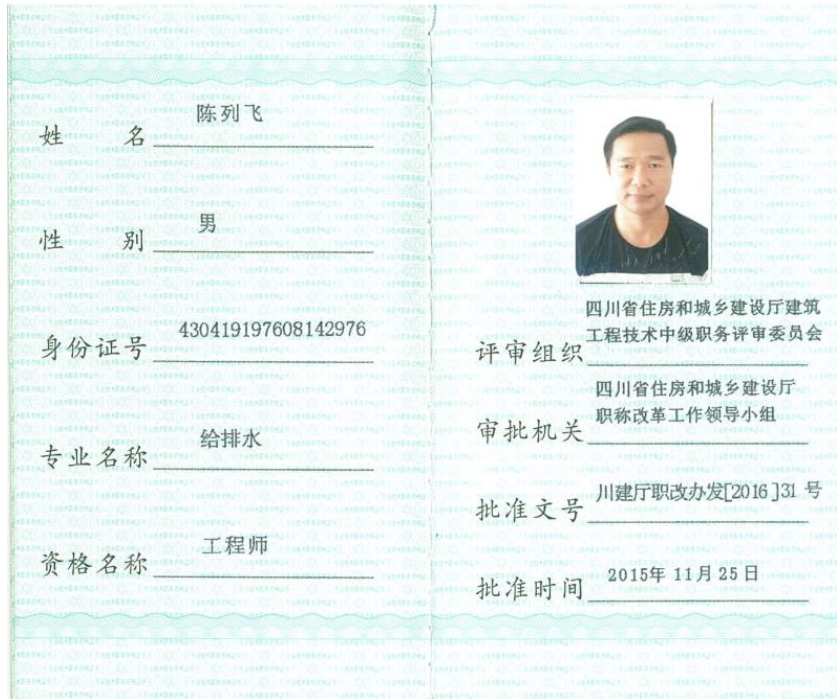 姓名 陈列飞
性别 男
身份证号 430419197608142976
专业名称 给排水
资格名称 工程师
四川省住房和城乡建设厅建筑
评审组织 工程技术中级职务评审委员会
四川省住房和城乡建设厅
审批机关 职称改革工作领导小组
批准文号 川建厅职改办发[2016]31 号
批准时间 2015年 11月 25 日